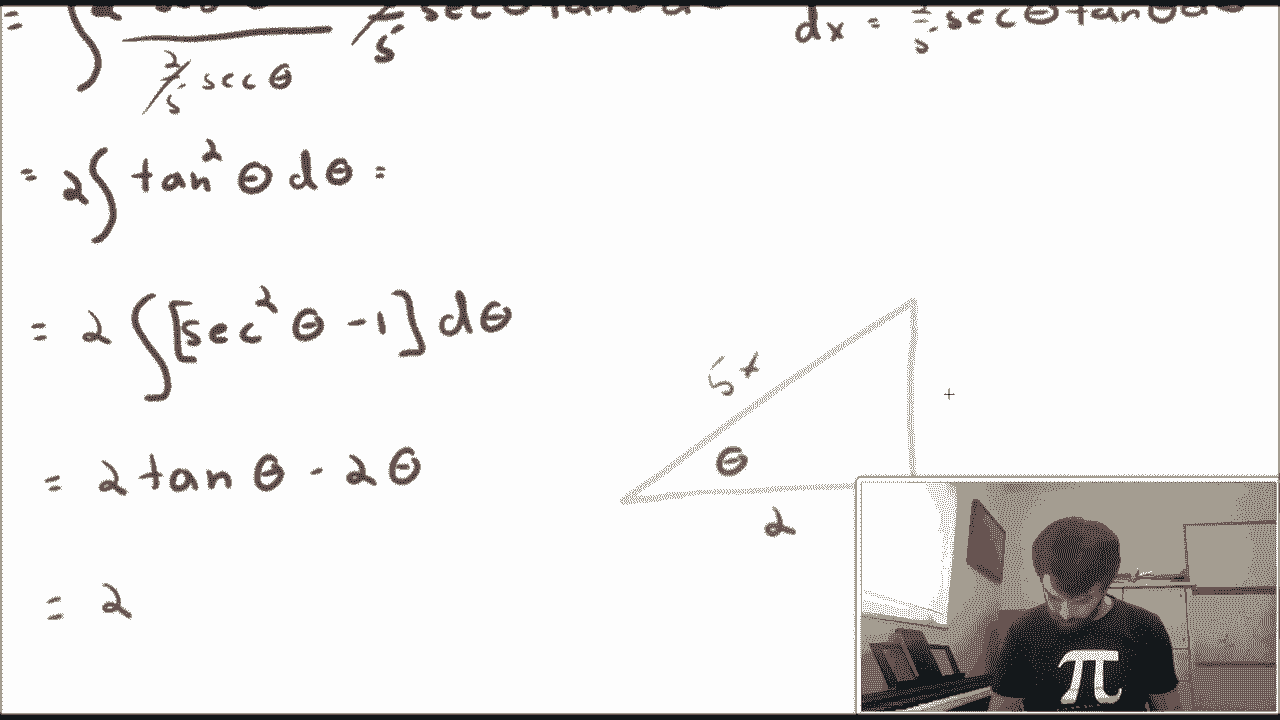 = ∫ 2/5 sec θ 2/5 sec θ tan θ dθ
dx = 2/5 sec θ tan θ dθ
= 2∫ tan² θ dθ =
= 2 ∫ [sec² θ - 1] dθ
5x
= 2 tan θ - 2θ
θ
2
= 2
π